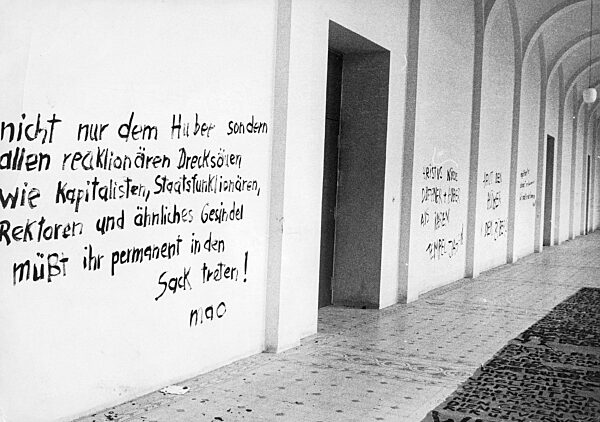 nicht nur dem Huber sondern
allen reaktionären Drecksäuen
wie Kapitalisten, Staatsfunktionären,
Rektoren und ähnliches Gesindel
müßt ihr permanent in den
Sack treten!
mao
+ HUBER
TEMPEL
HAUT DEN